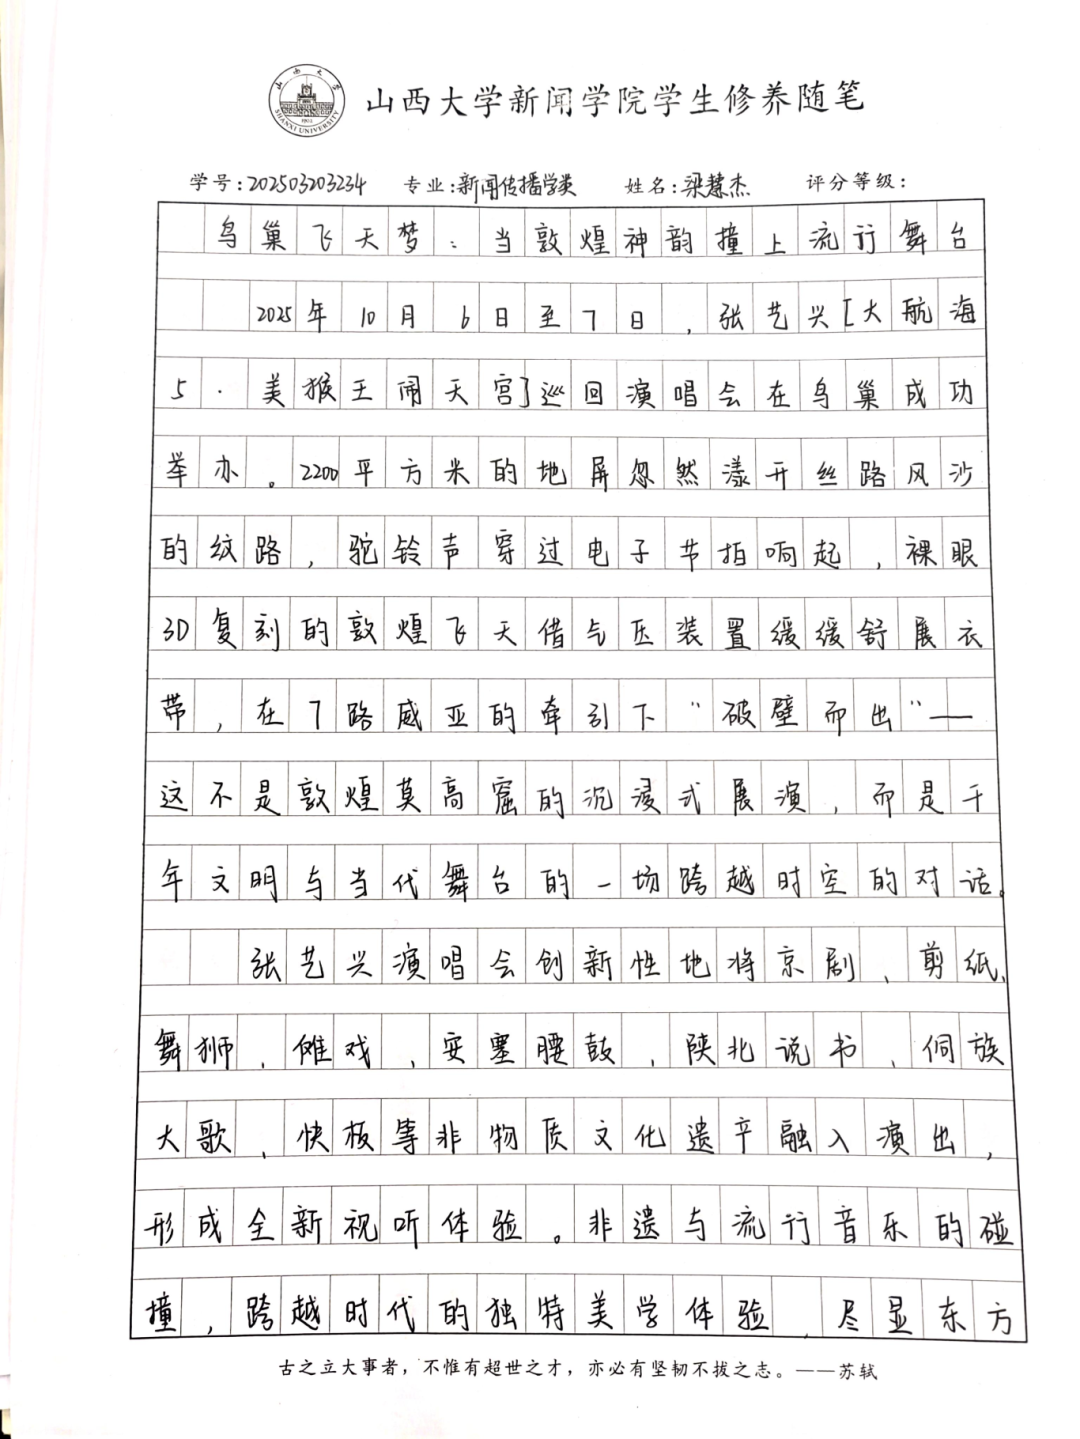 山西大学新闻学院学生修养随笔
山西大学
SHANXI UNIVERSITY
1902
学号:202503203234 专业:新闻传播学类 姓名:梁慧杰 评分等级:
鸟巢飞天梦:当敦煌神韵撞上流行舞台
2025年10月6日至7日,张艺兴[大航海
5·美猴王闹天宫]巡回演唱会在鸟巢成功
举办。2200平方米的地屏忽然漾开丝路风沙
的纹路,驼铃声穿过电子节拍响起,裸眼
3D复刻的敦煌飞天借气压装置缓缓舒展衣
带,在7路威亚的牵引下“破壁而出”—
这不是敦煌莫高窟的沉浸式展演,而是千
年文明与当代舞台的一场跨越时空的对话。
张艺兴演唱会创新性地将京剧、剪纸、
舞狮、傩戏,安塞腰鼓,陕北说书、侗族
大歌、快板等非物质文化遗产融入演出,
形成全新视听体验。非遗与流行音乐的碰
撞,跨越时代的独特美学体验,尽显东方
古之立大事者,不惟有超世之才,亦必有坚韧不拔之志。——苏轼